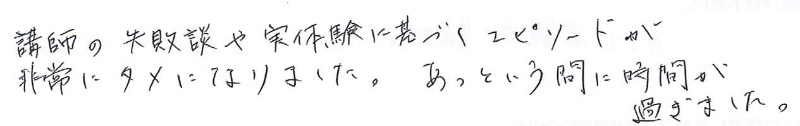 講師の失敗談や実体験に基づくエピソードが
非常にタメになりました。あっという間に時間が
過ぎました。